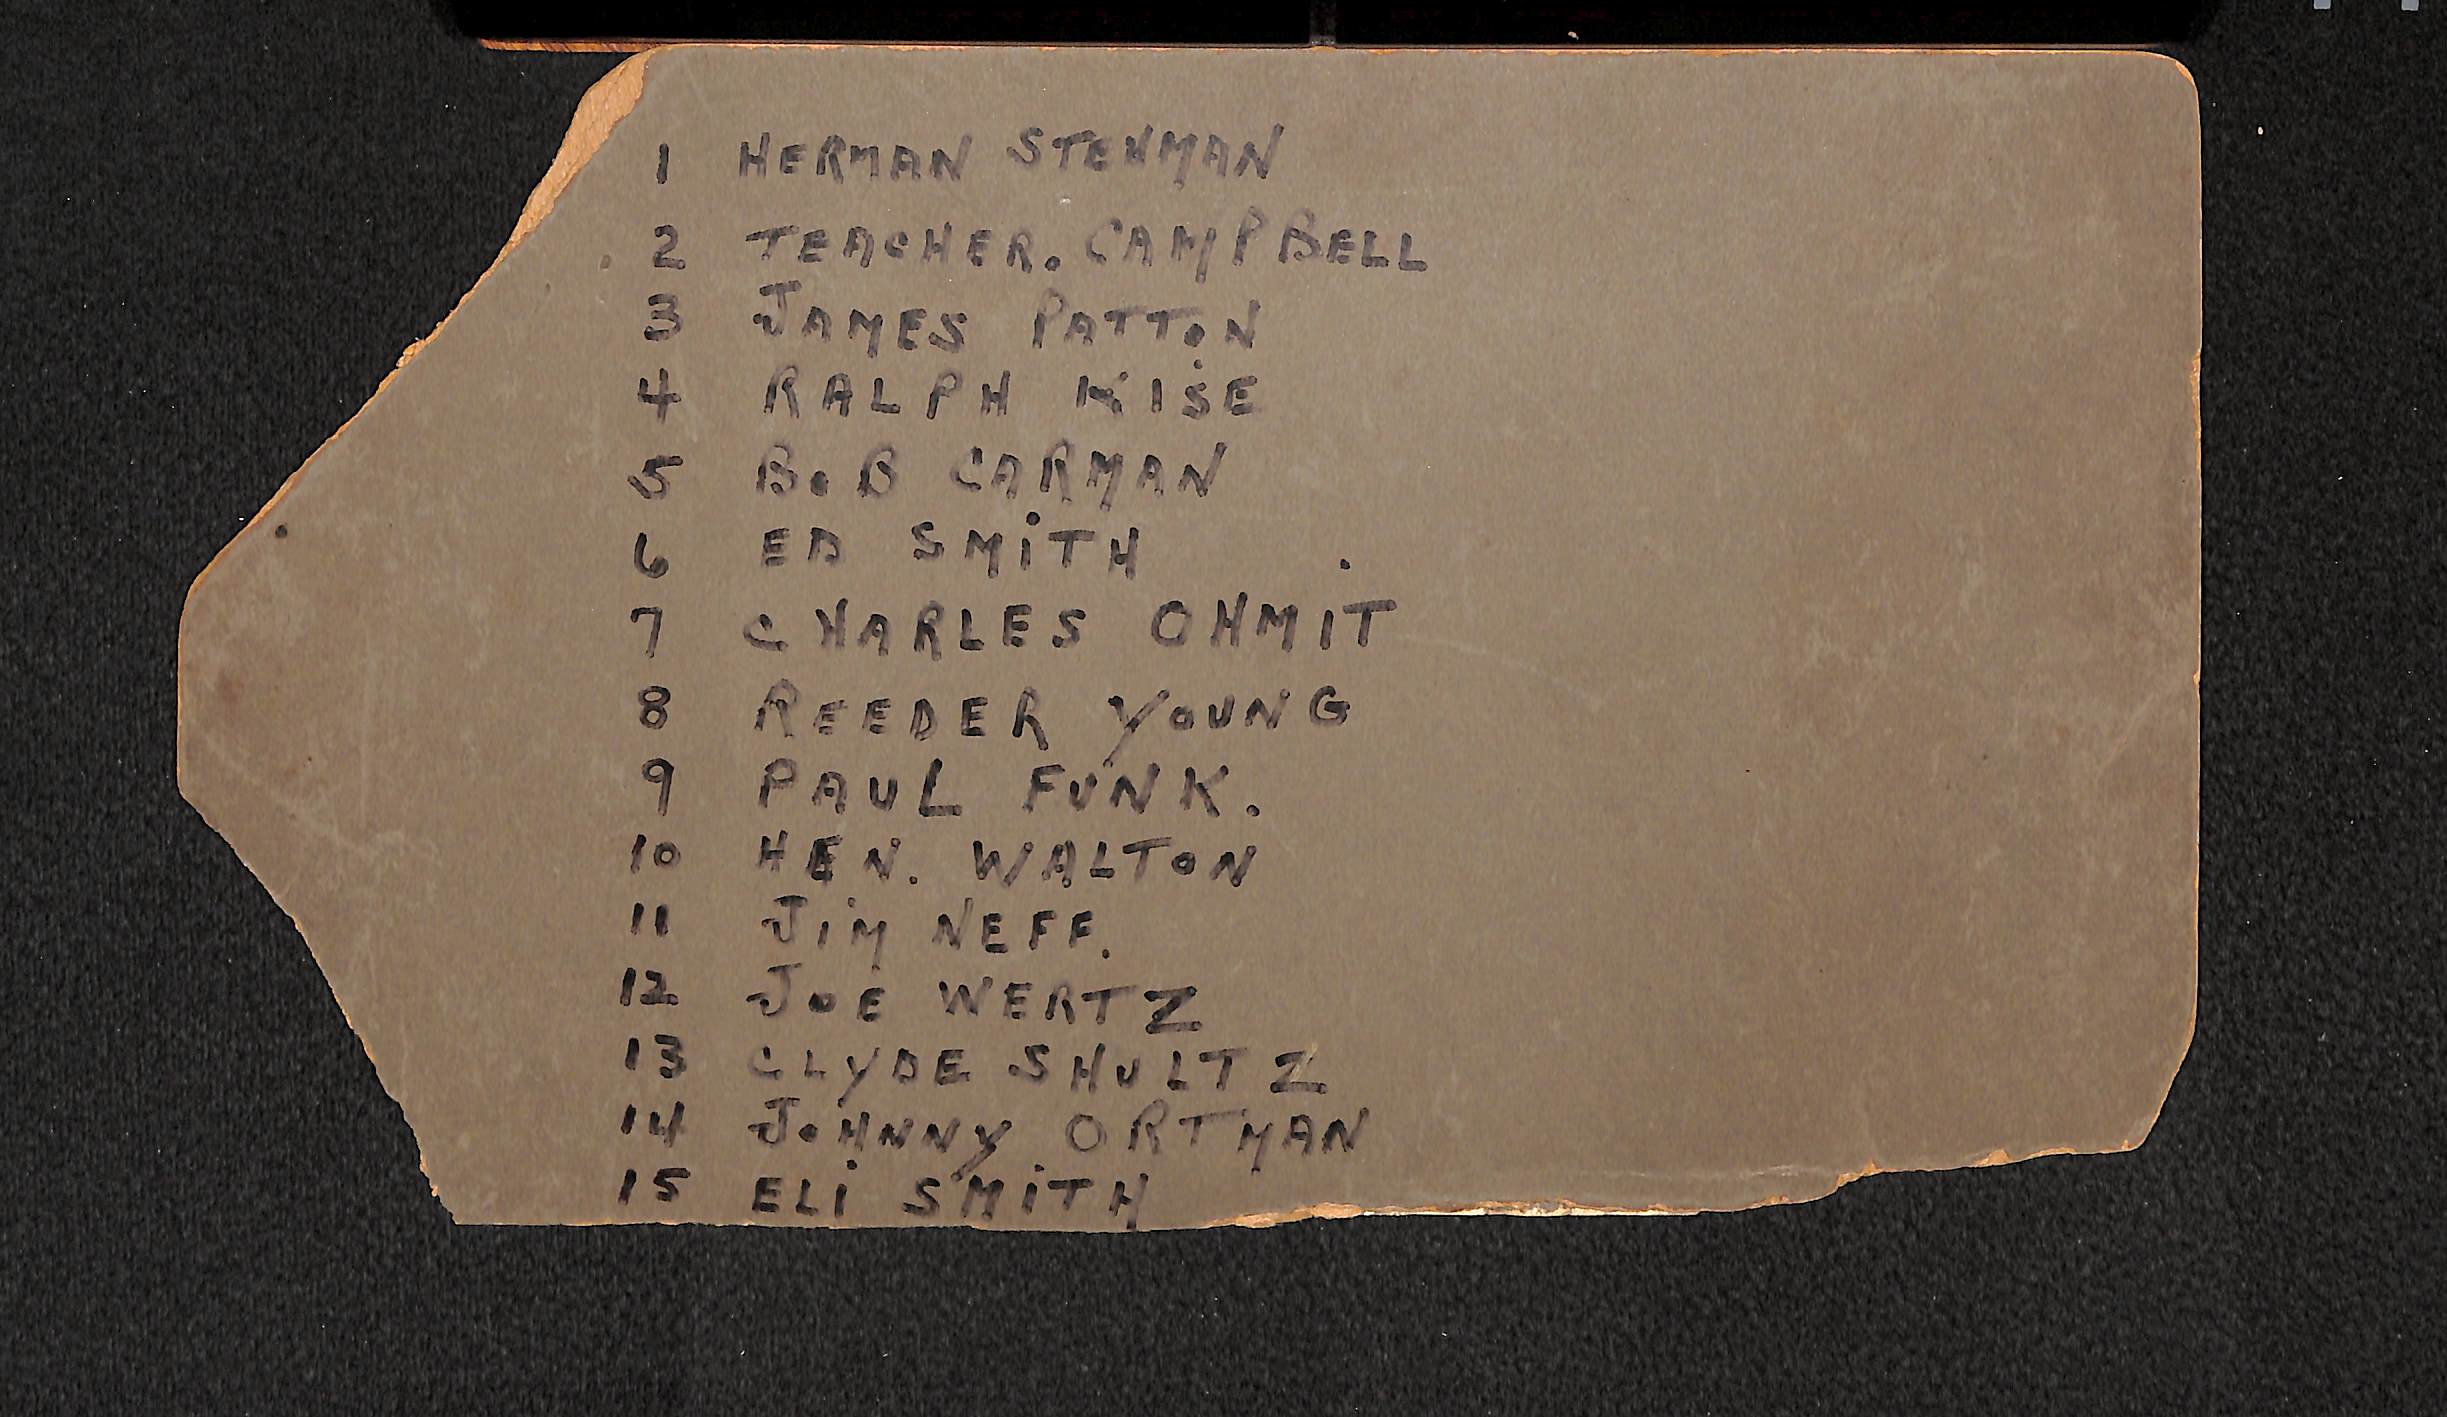 1 HERMAN STEHMAN
2 TEACHER. CAMPBELL
3 JAMES PATTON
4 RALPH KISE
5 BOB CARMAN
6 ED SMITH
7 CHARLES OHMIT
8 REEDER YOUNG
9 PAUL FUNK.
10 HEN. WALTON
11 JIM NEFF.
12 JOE WERTZ
13 CLYDE SHULTZ
14 JOHNNY ORTMAN
15 ELI SMITH